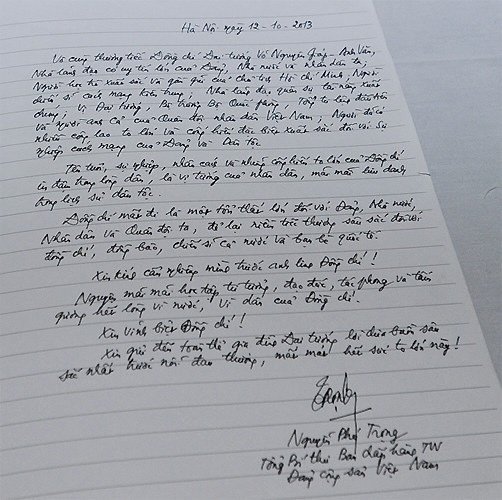 Hà Nội ngày 12-10-2013
Vô cùng thương tiếc Đồng chí Đại tướng Võ Nguyên Giáp - Anh Văn,
Nhà lãnh đạo có uy tín lớn của Đảng, Nhà nước và nhân dân ta;
Người học trò xuất sắc và gần gũi của Chủ tịch Hồ Chí Minh; Người
chiến sĩ cách mạng kiên trung; Nhà lãnh đạo quân sự tài năng xuất
chúng; Vị Đại tướng, Bộ trưởng Bộ Quốc phòng, Tổng tư lệnh đầu tiên
và người anh cả của Quân đội nhân dân Việt Nam; Người đã có
nhiều công lao to lớn và cống hiến đặc biệt xuất sắc đối với sự
nghiệp cách mạng của Đảng và Dân tộc.
Tên tuổi, sự nghiệp, nhân cách và những cống hiến to lớn của Đồng chí
in đậm trong lòng dân, là vị tướng của nhân dân, mãi mãi lưu danh
trong lịch sử dân tộc.
Đồng chí mất đi là một tổn thất lớn đối với Đảng, Nhà nước,
Nhân dân và Quân đội ta, để lại niềm tiếc thương sâu sắc đối với
đồng chí, đồng bào, chiến sĩ cả nước và bạn bè quốc tế.
Xin kính cẩn nghiêng mình trước anh linh Đồng chí!
Nguyện mãi mãi học tập tư tưởng, đạo đức, tác phong và tấm
gương hết lòng vì nước, vì dân của Đồng chí.
Xin Vĩnh biệt Đồng chí!
Xin gửi đến toàn thể gia đình Đại tướng lời chia buồn sâu
sắc nhất trước nỗi đau thương, mất mát hết sức to lớn này!
Nguyễn Phú Trọng
Tổng Bí thư Ban chấp hành TW
Đảng cộng sản Việt Nam